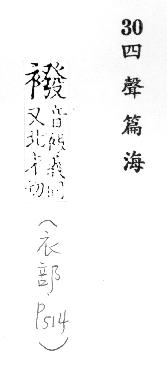 30四聲篇海
襏
音義同
又北末切
(衣部P514)